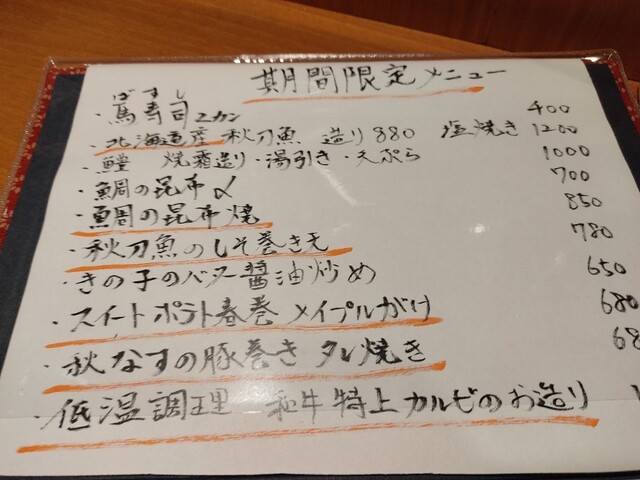 期間限定メニュー
ばずし
・馬寿司 2カン 400
・北海道産 秋刀魚 造り 880 塩焼き 1200
・鱧 焼霜造り・湯引き・天ぷら 1000
・鯛の昆布〆 700
・鯛の昆布焼 850
・秋刀魚のしそ巻き天 780
・きの子のバター醤油炒め 650
・スイートポテト春巻 メイプルがけ 680
・秋なすの豚巻き タレ焼き 68
・低温調理 和牛特上カルビのお造り